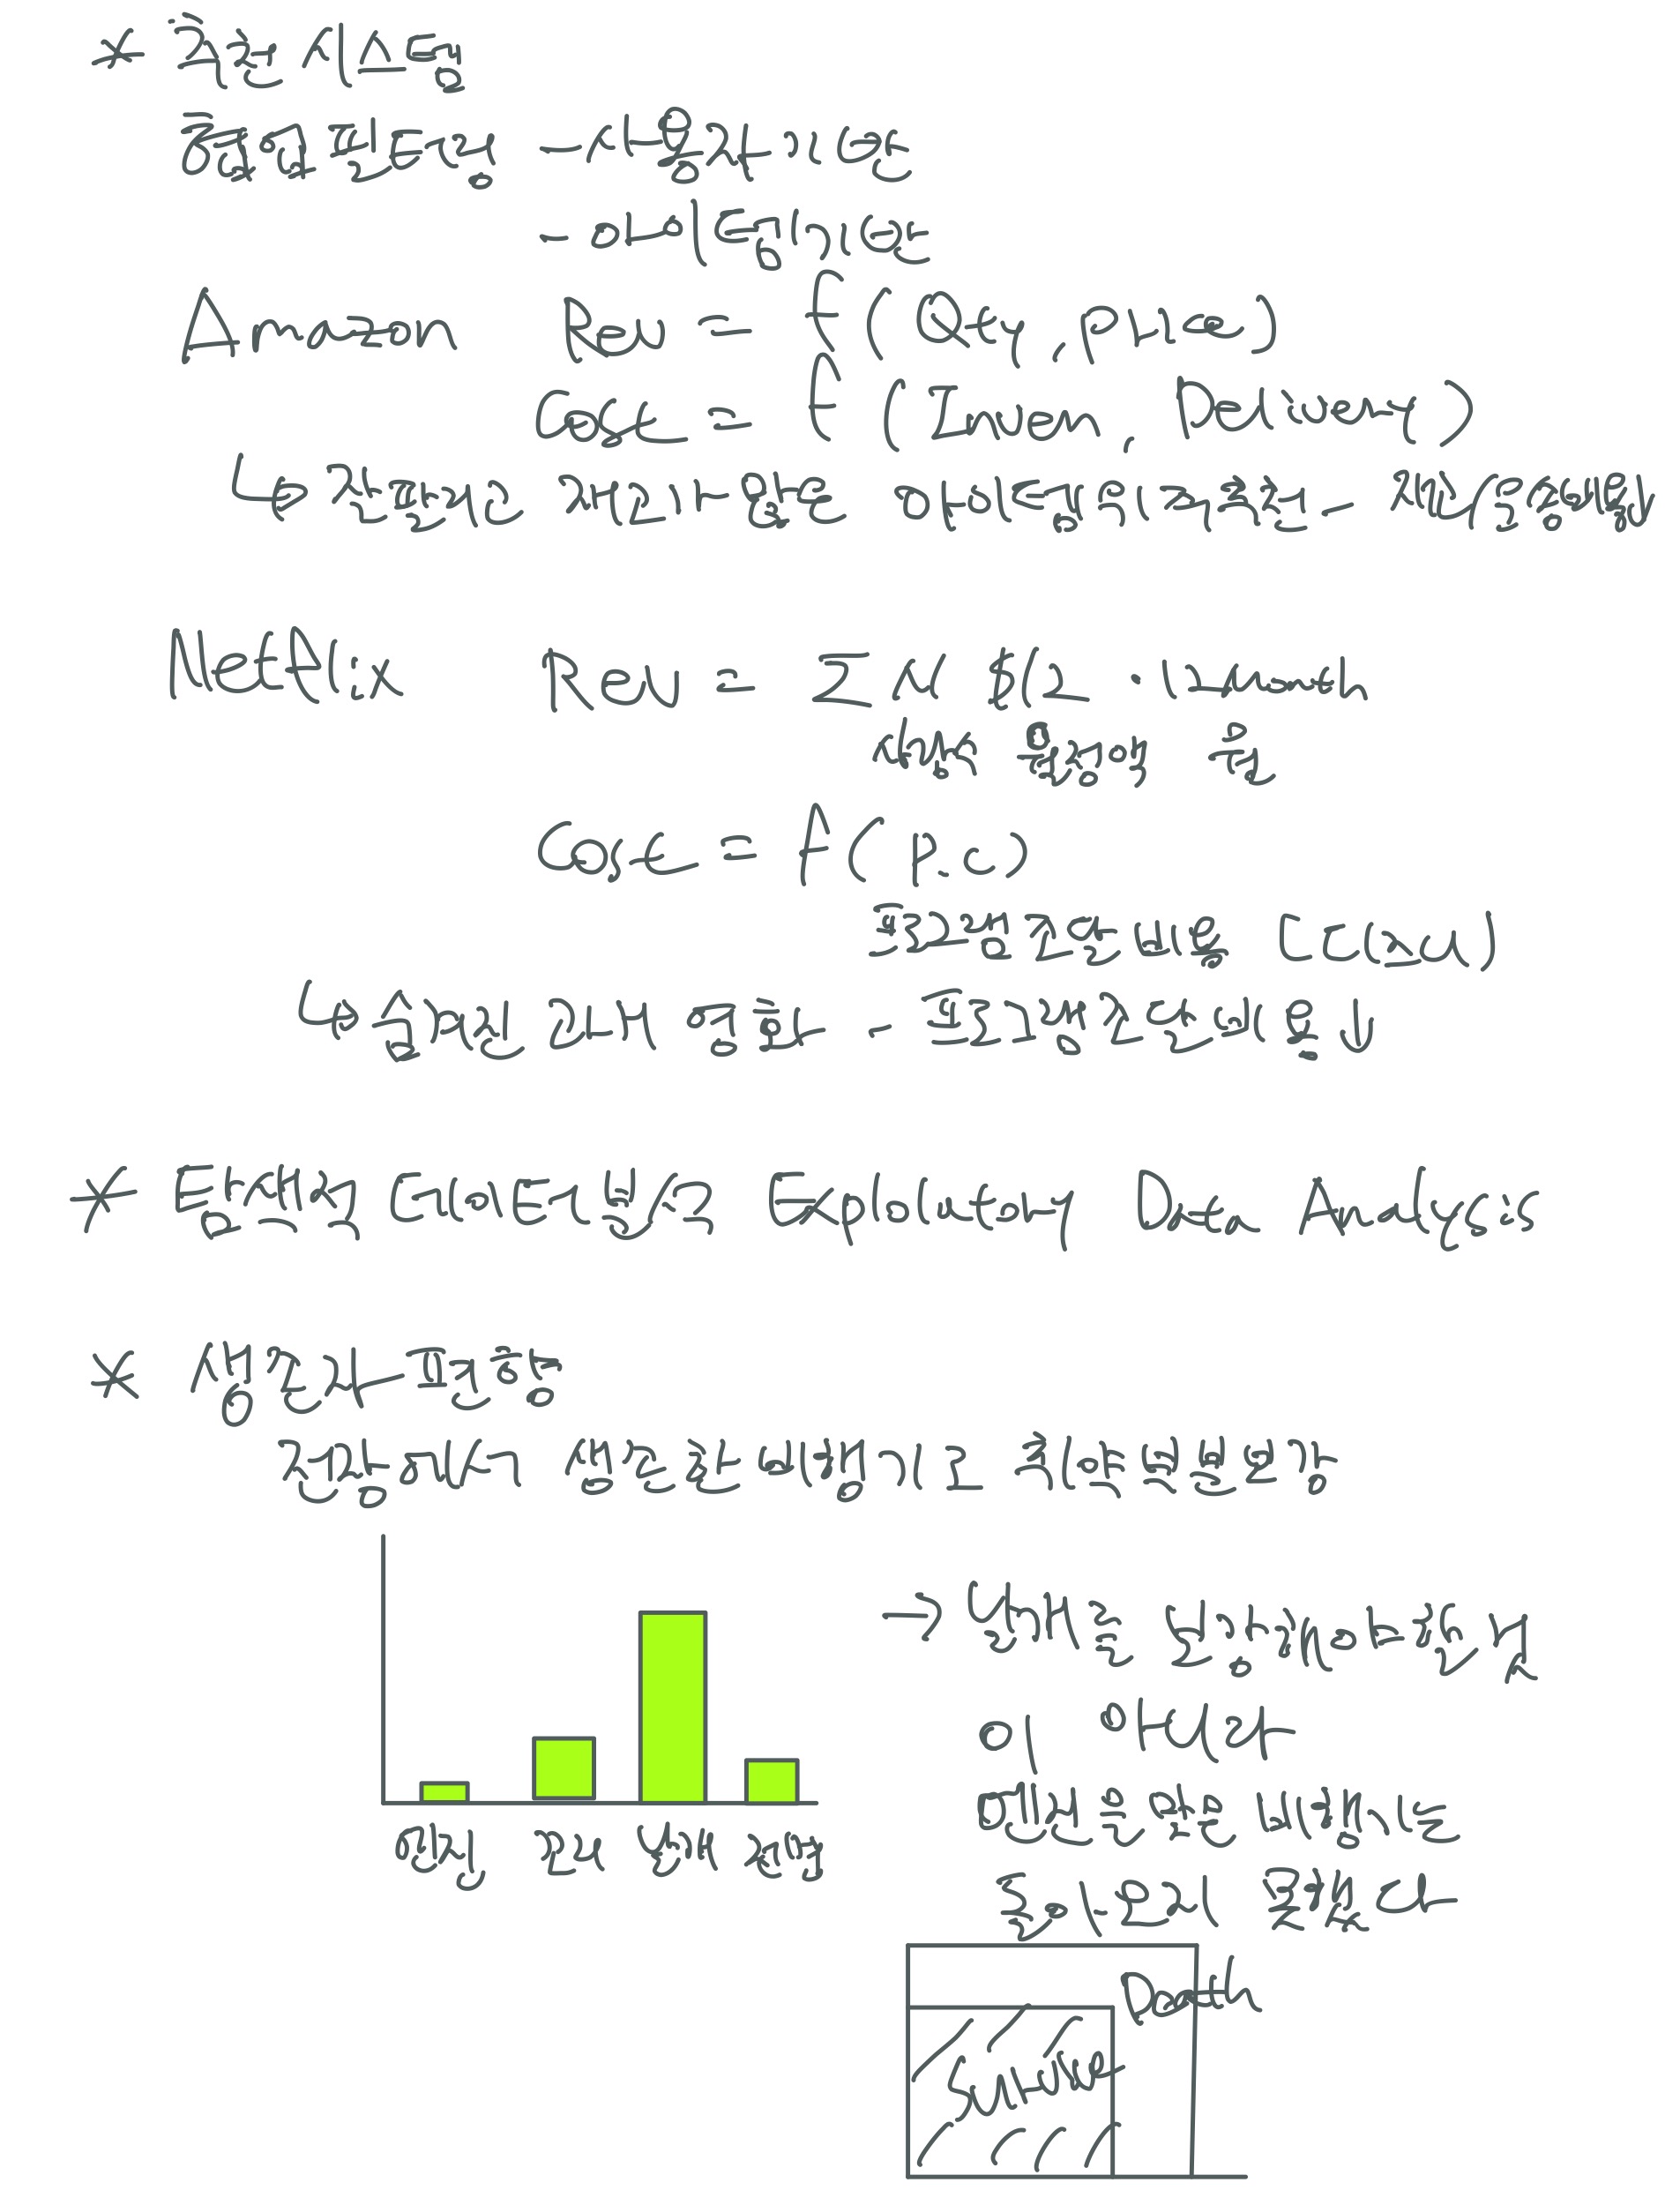 * 추천 시스템
협업필터링 - 사용자기반
- 아이템기반
Amazon Rev = f(Qty, price)
Cost = f(Inven, Delivery)
↳ 잘팔리고 자연사 않는 아이템위주추천 - 재고운송비용↓
Netflix Rev = ΣN $12 · 12month
사람수 월정액 총
Cost = f(p.c)
판권집행비용 [C(xu)
↳ 숨겨진 과거 영화 - 판권집행비용↓
* 탐색적 데이터분석 Exploratory Data Analysis
* 생존자편향
전쟁에서 생존한 비행기로 취약부분보강
엔진 꼬리 날개 전면
→ 날개를 보강해야할 것
이 아니라
엔진을맞은 비행기는
돌아오지 못했다
Death
Survive